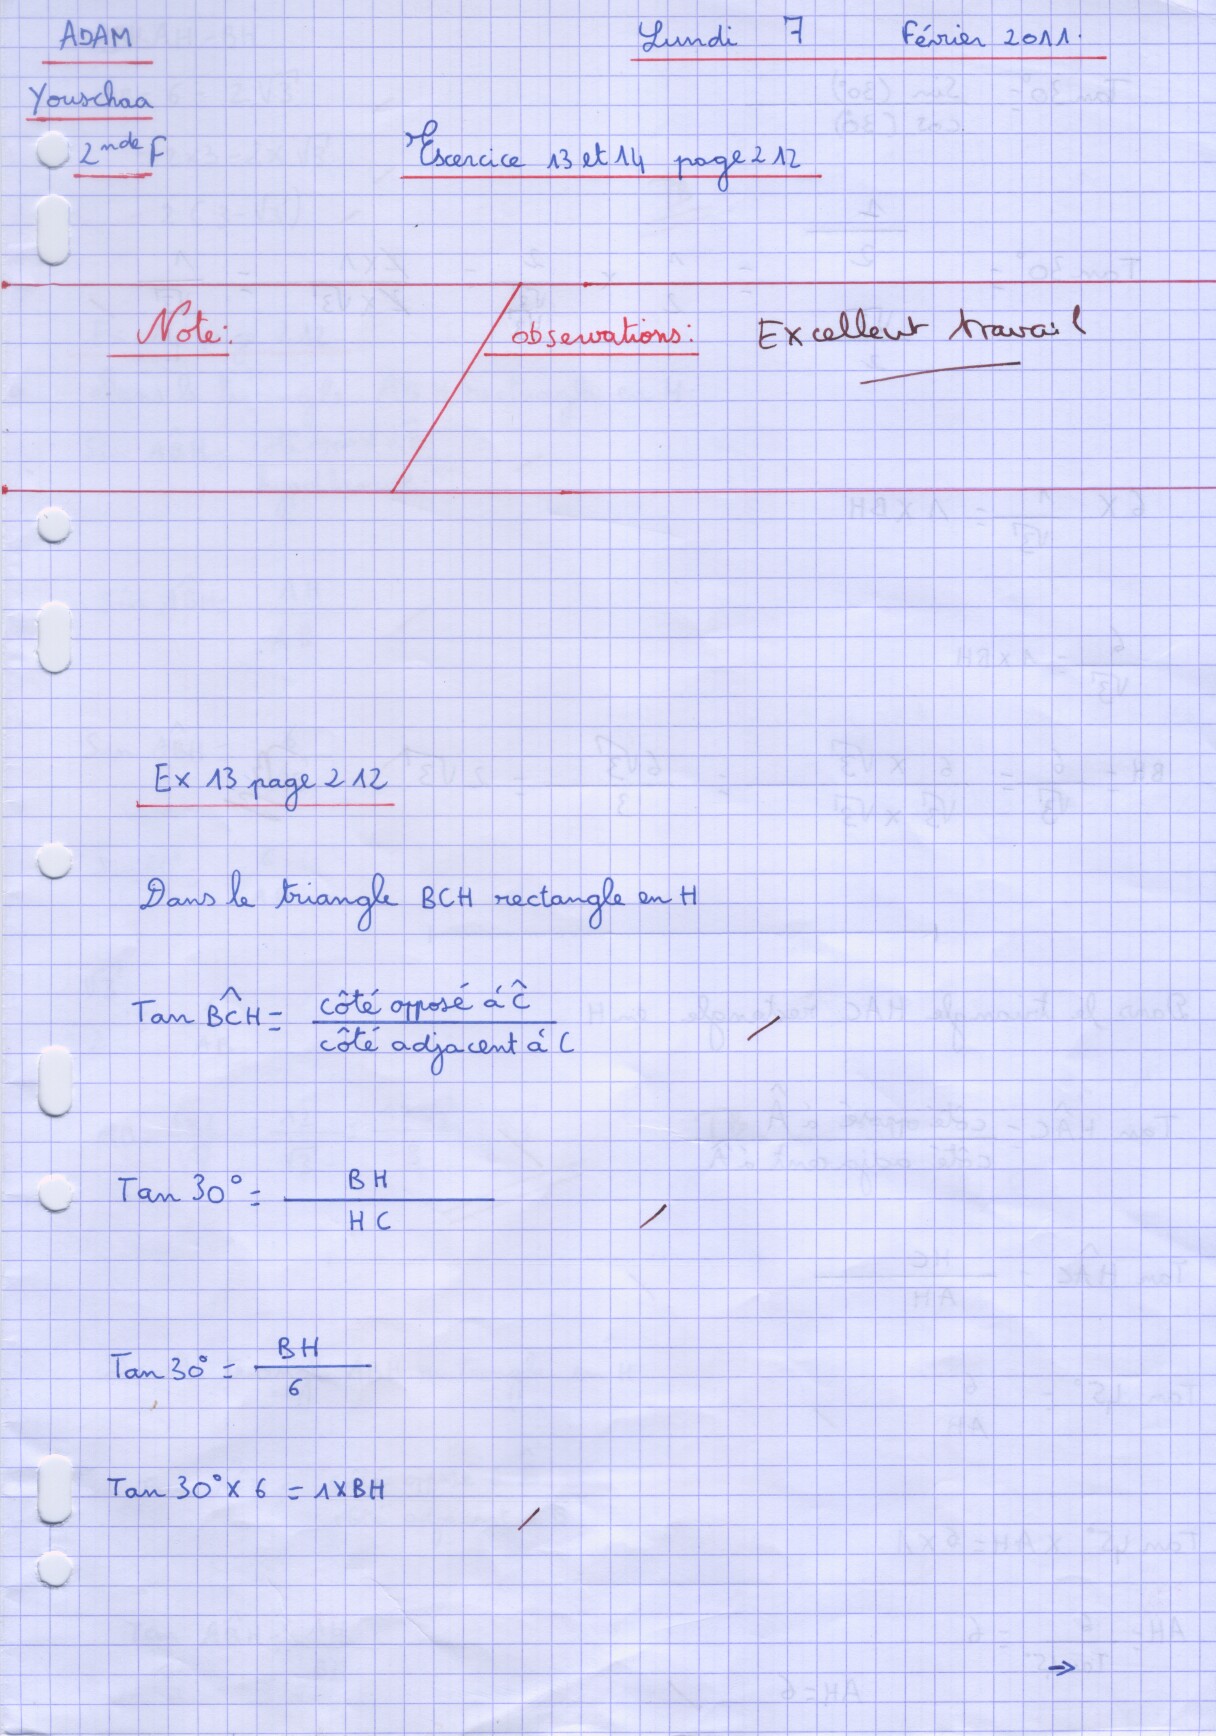 ADAM
Lundi 7 Février 2011.
Youschaa
2nde F
Excercice 13 et 14 page 212
Note:
observations:
Excellent travail
Ex 13 page 212
Dans le triangle BCH rectangle en H
Tan BĈH = côté opposé á Ĉ / côté adjacent á C
Tan 30° = BH / HC
Tan 30° = BH / 6
Tan 30° x 6 = 1 x BH
→